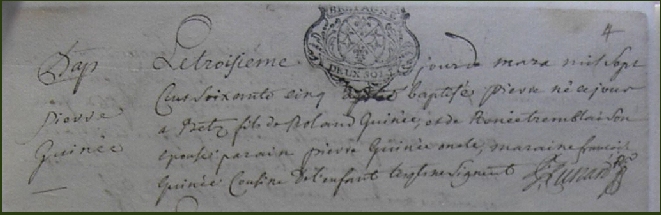 4
BRETAGNE
DEUX SOLS
Bap
pierre
Guinée
Le troisième jour de mars mil sept
cens soixante cinq a été baptisé pierre né ce jour
a fils de Roland Guinée, et de Renée tremblai son
epouse parain pierre Guinée oncle, maraine françoise
Guinée Cousine de l'enfant